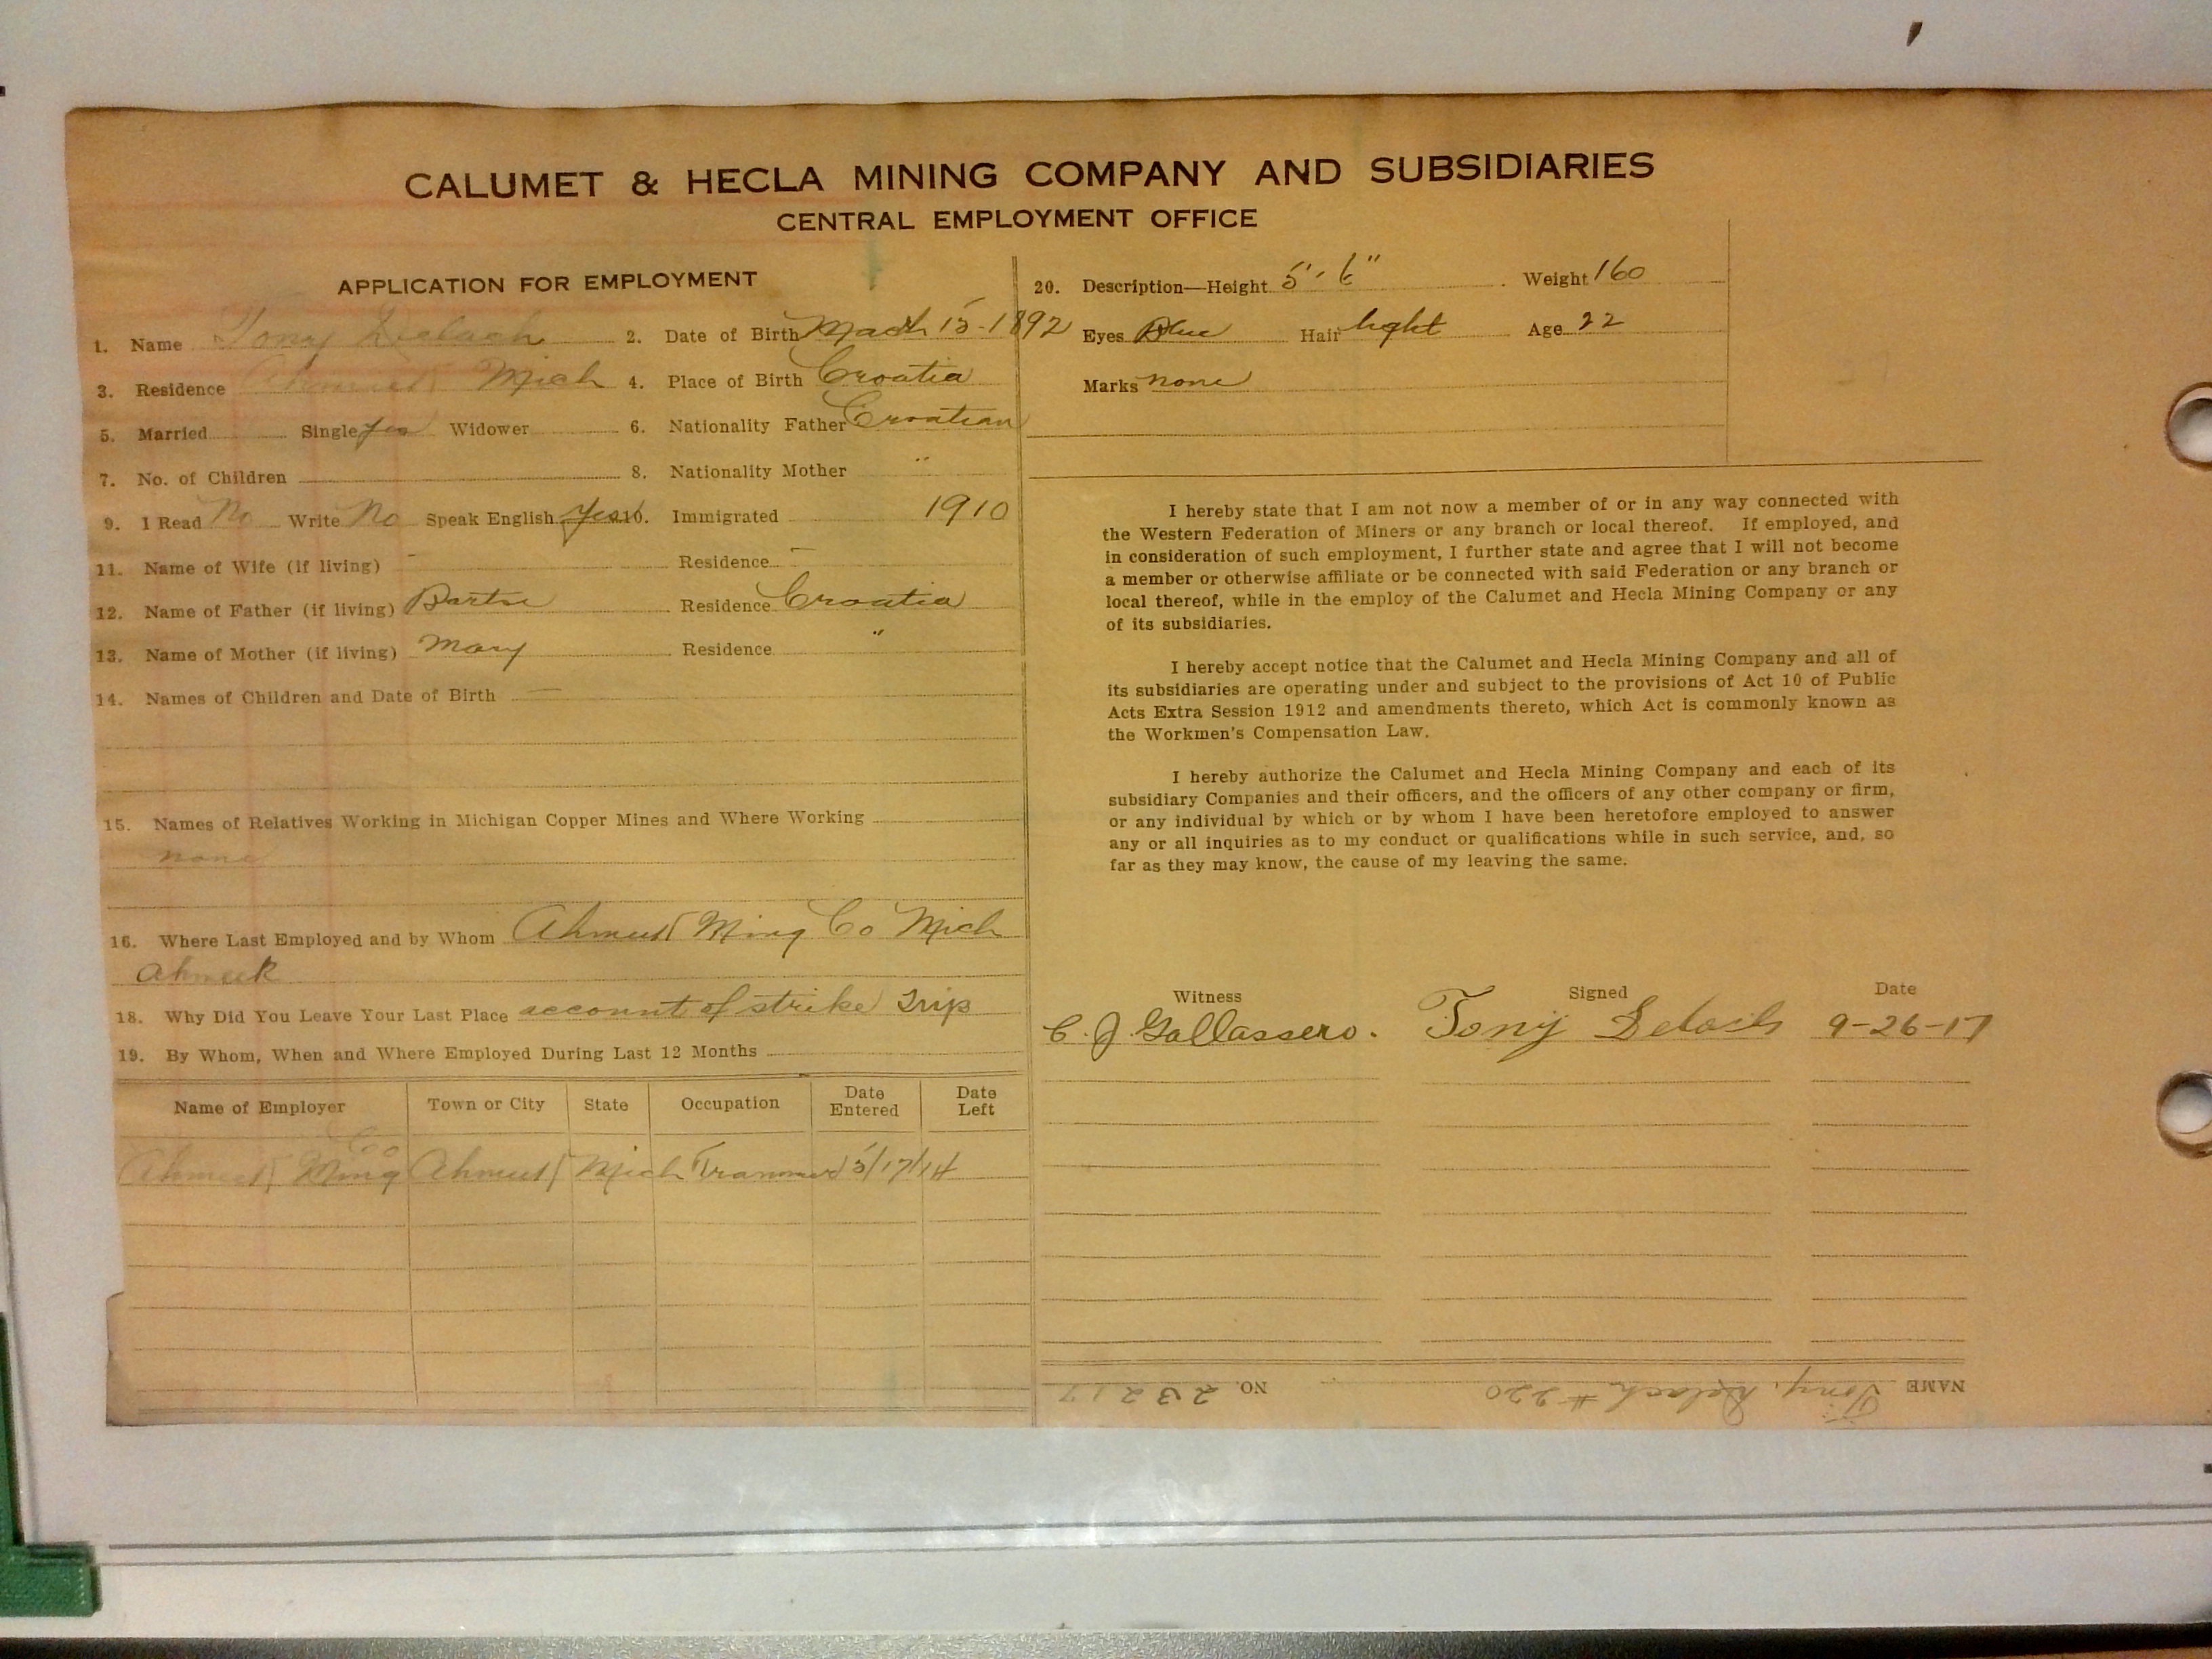 CALUMET & HECLA MINING COMPANY AND SUBSIDIARIES
CENTRAL EMPLOYMENT OFFICE
APPLICATION FOR EMPLOYMENT
1. Name Tony Delach 2. Date of Birth March 15-1892
3. Residence Ahmeek Mich 4. Place of Birth Croatia
5. Married Single yes Widower 6. Nationality Father Croatian
7. No. of Children 8. Nationality Mother "
9. I Read No Write No Speak English Yes 10. Immigrated 1910
11. Name of Wife (if living) - Residence -
12. Name of Father (if living) Residence Croatia
13. Name of Mother (if living) Mary Residence "
14. Names of Children and Date of Birth —
15. Names of Relatives Working in Michigan Copper Mines and Where Working
none
16. Where Last Employed and by Whom Ahmeek Ming Co Mich
Ahmeek
18. Why Did You Leave Your Last Place account of strike Trip
19. By Whom, When and Where Employed During Last 12 Months
Name of Employer Town or City State Occupation Date Entered Date Left
Ahmeek Ming Co Ahmeek Mich Trammer 5/17/14
20. Description—Height 5'-6" Weight 160
Eyes Blue Hair light Age 22
Marks none
I hereby state that I am not now a member of or in any way connected with
the Western Federation of Miners or any branch or local thereof. If employed, and
in consideration of such employment, I further state and agree that I will not become
a member or otherwise affiliate or be connected with said Federation or any branch or
local thereof, while in the employ of the Calumet and Hecla Mining Company or any
of its subsidiaries.
I hereby accept notice that the Calumet and Hecla Mining Company and all of
its subsidiaries are operating under and subject to the provisions of Act 10 of Public
Acts Extra Session 1912 and amendments thereto, which Act is commonly known as
the Workmen's Compensation Law.
I hereby authorize the Calumet and Hecla Mining Company and each of its
subsidiary Companies and their officers, and the officers of any other company or firm,
or any individual by which or by whom I have been heretofore employed to answer
any or all inquiries as to my conduct or qualifications while in such service, and, so
far as they may know, the cause of my leaving the same.
Witness Signed Date
C. J. Gallassero. Tony Delach 9-26-17
NAME Tony Delach #220 NO. 23217